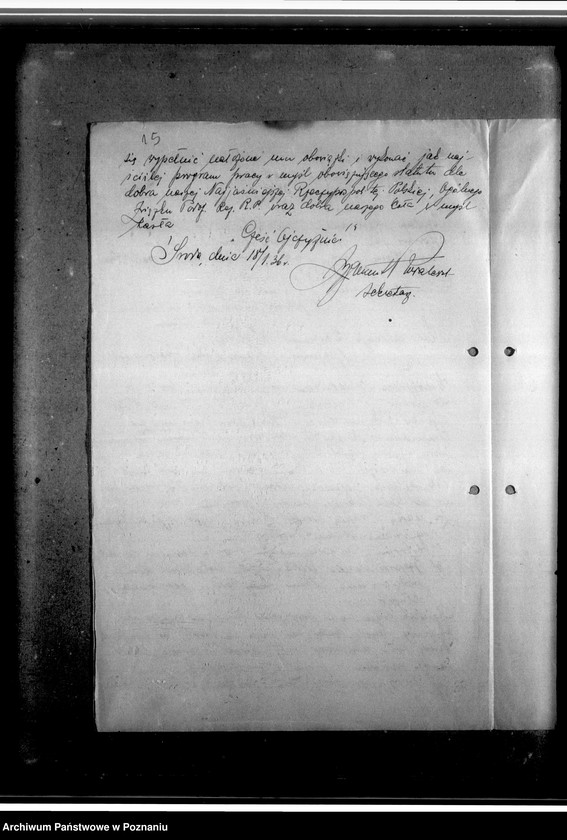 15
się wypełnić nałożone mu obowiązki i wykonać jak naj-
ściślej program pracy w myśl obowiązującego statutu dla
dobra naszej Najjaśniejszej Rzeczypospolitej Polskiej, Ogólnego
Związku Podof. Rez. R.P. oraz dobra naszego Koła w myśl
hasła
"Cześć Ojczyźnie"
Środa, dnia 18/1.36 r.
Zygmunt
sekretarz.
Archiwum Państwowe w Poznaniu